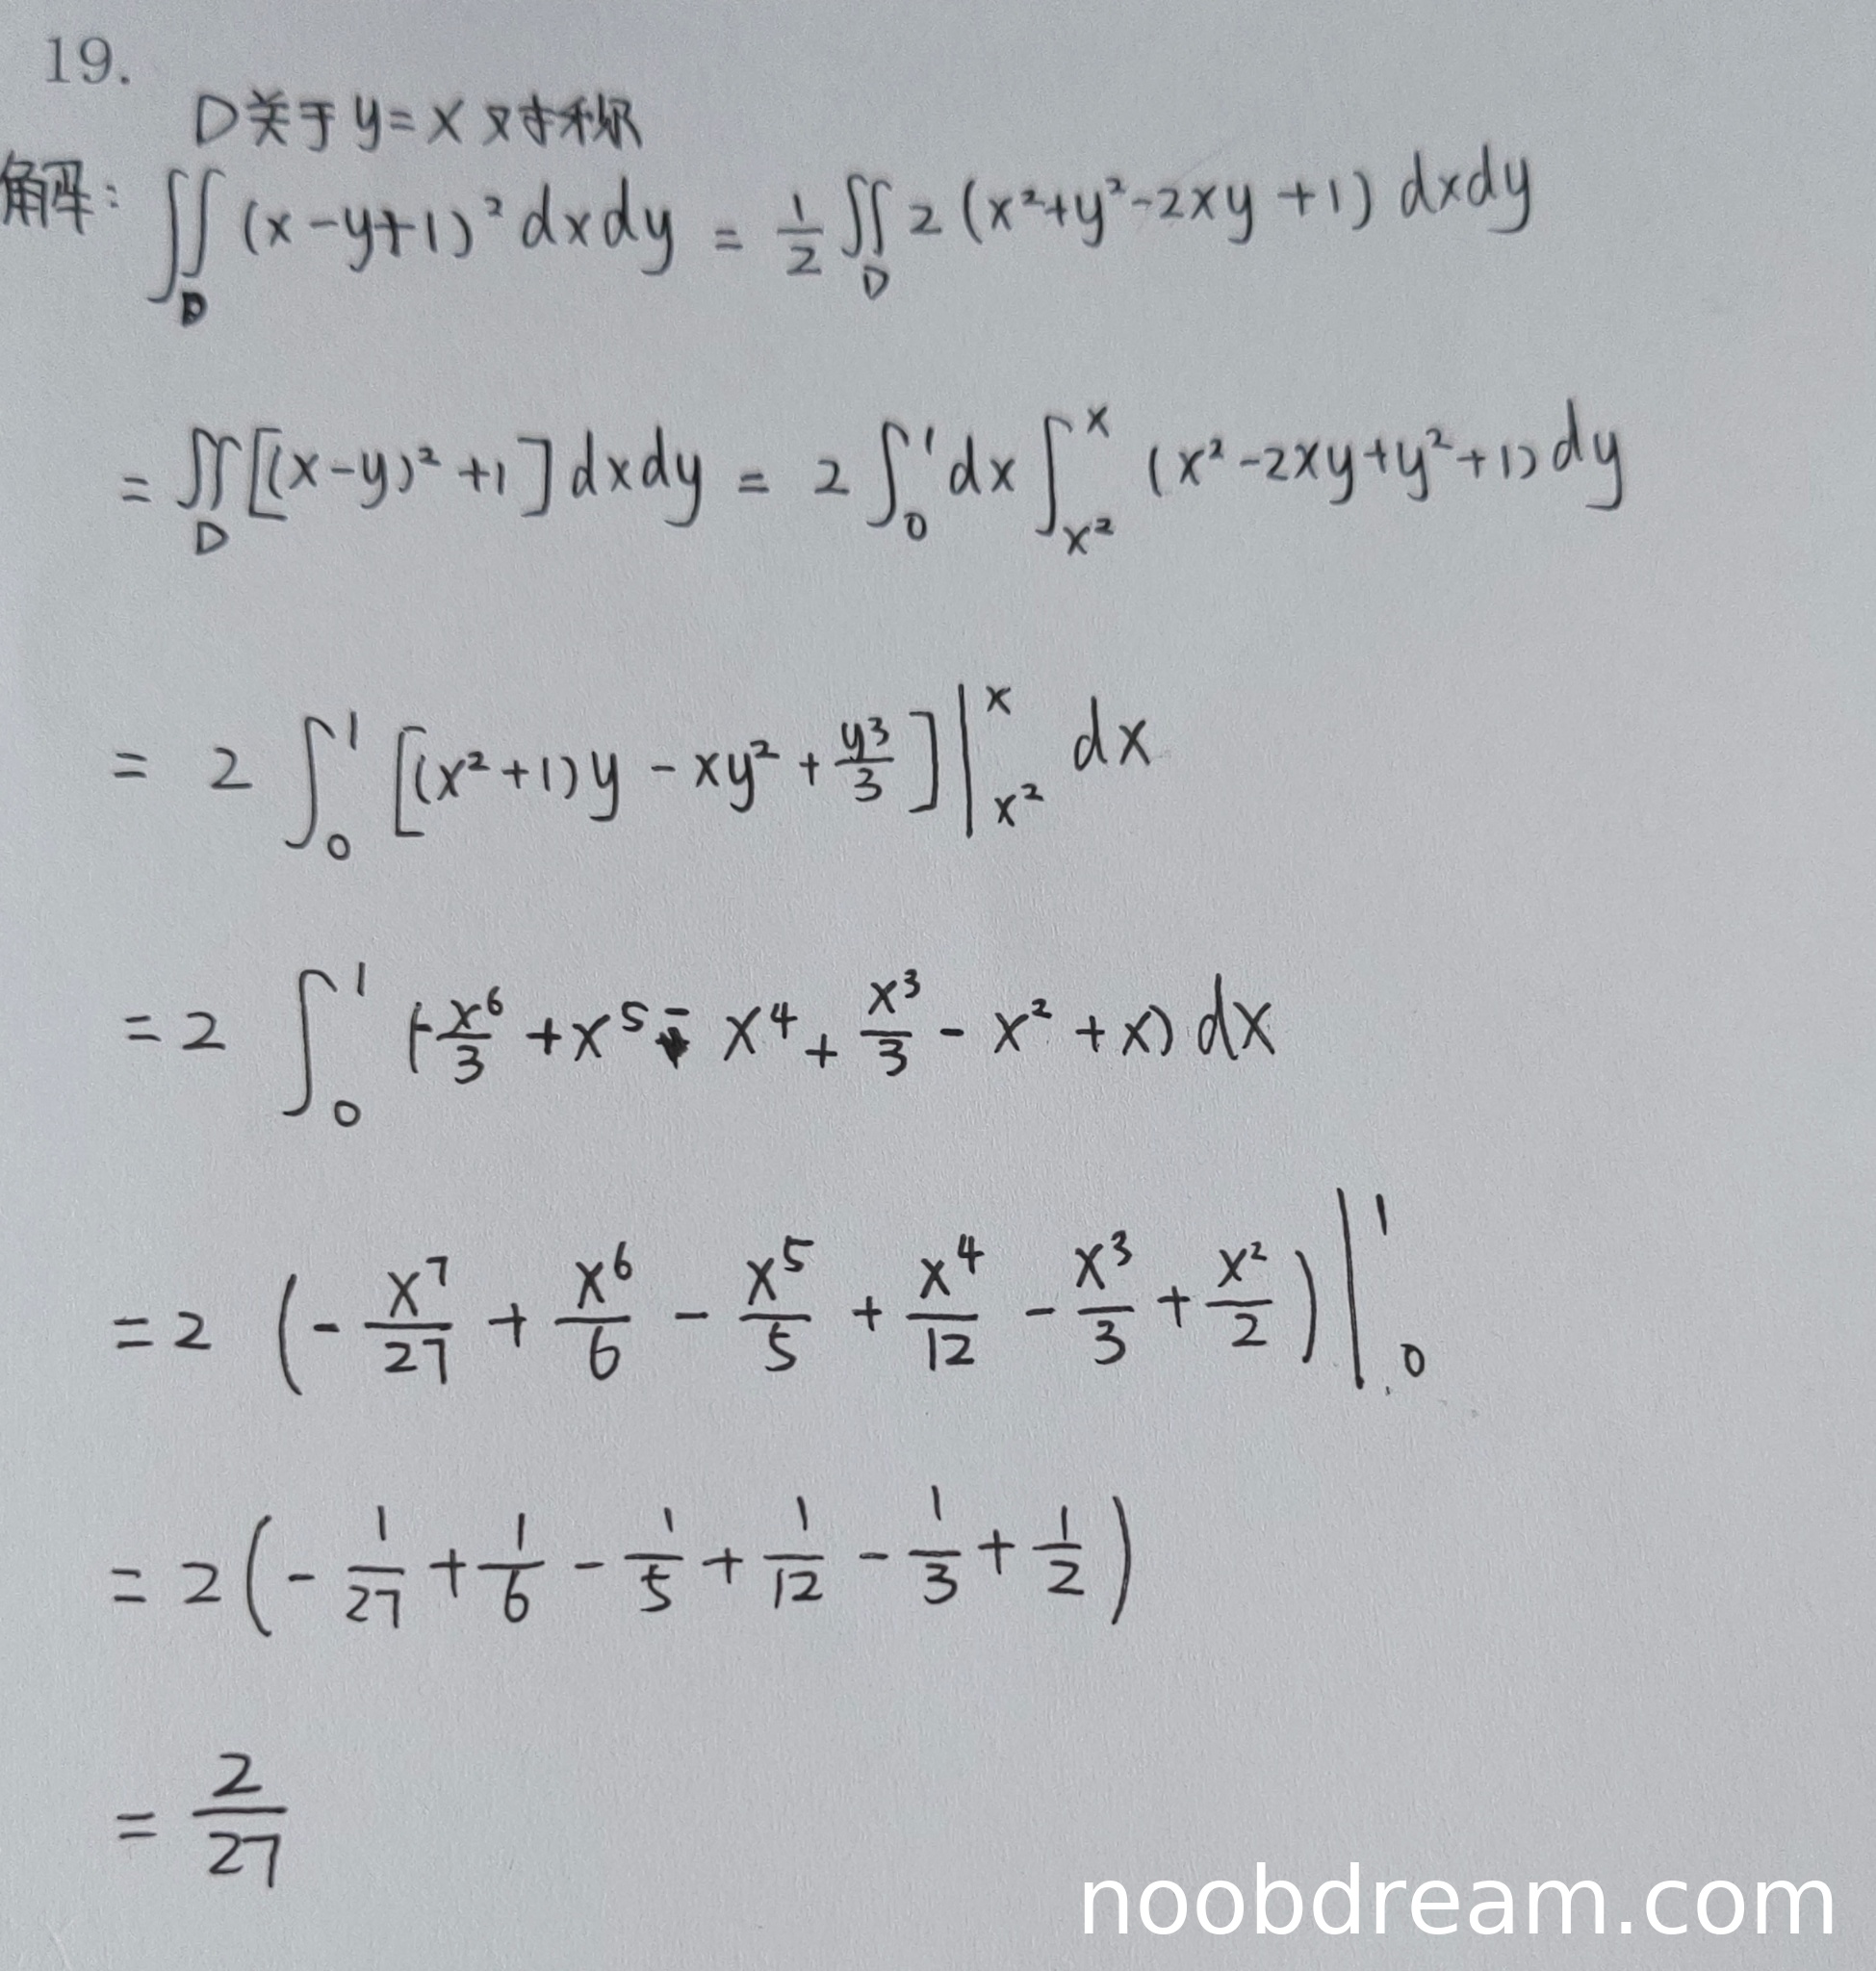 19.
D关于y=x对称
解: ∬_D (x-y+1)² dxdy = 1/2 ∬_D 2(x²+y²-2xy+1) dxdy
= ∬_D [(x-y)²+1] dxdy = 2 ∫₀¹ dx ∫_{x²}^{x} (x²-2xy+y²+1) dy
= 2 ∫₀¹ [(x²+1)y - xy² + y³/3] |_{x²}^{x} dx
= 2 ∫₀¹ (-x⁶/3 + x⁵ - x⁴ + x³/3 - x² + x) dx
= 2 (-x⁷/27 + x⁶/6 - x⁵/5 + x⁴/12 - x³/3 + x²/2) |₀¹
= 2 (-1/27 + 1/6 - 1/5 + 1/12 - 1/3 + 1/2)
= 2/27
noobdream.com